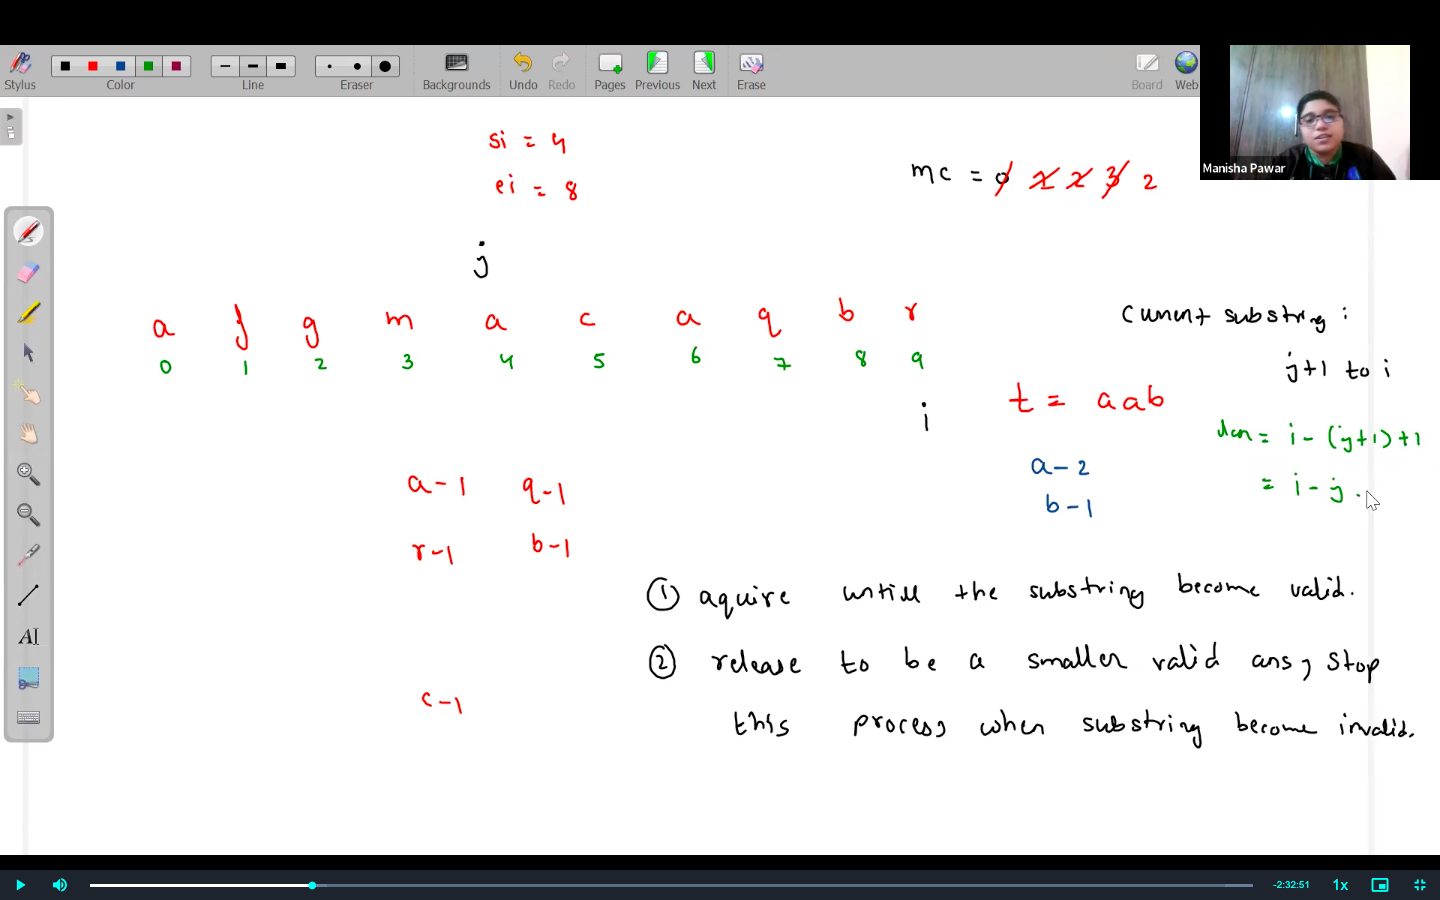 Stylus
Color
Line
Eraser
Backgrounds
Undo
Redo
Pages
Previous
Next
Erase
Board
Web
Manisha Pawar
si = 4
ei = 8
mc = 0 1 2 3 2
j
a f g m a c a q b r
0 1 2 3 4 5 6 7 8 9
i
t = aab
a-2
b-1
Current substring :
j+1 to i
len = i - (j+1) +1
= i - j .
a-1 q-1
r-1 b-1
c-1
① aquire untill the substring become valid.
② release to be a smaller valid ans, stop
this process when substring become invalid.
AI
-2:32:51
1x